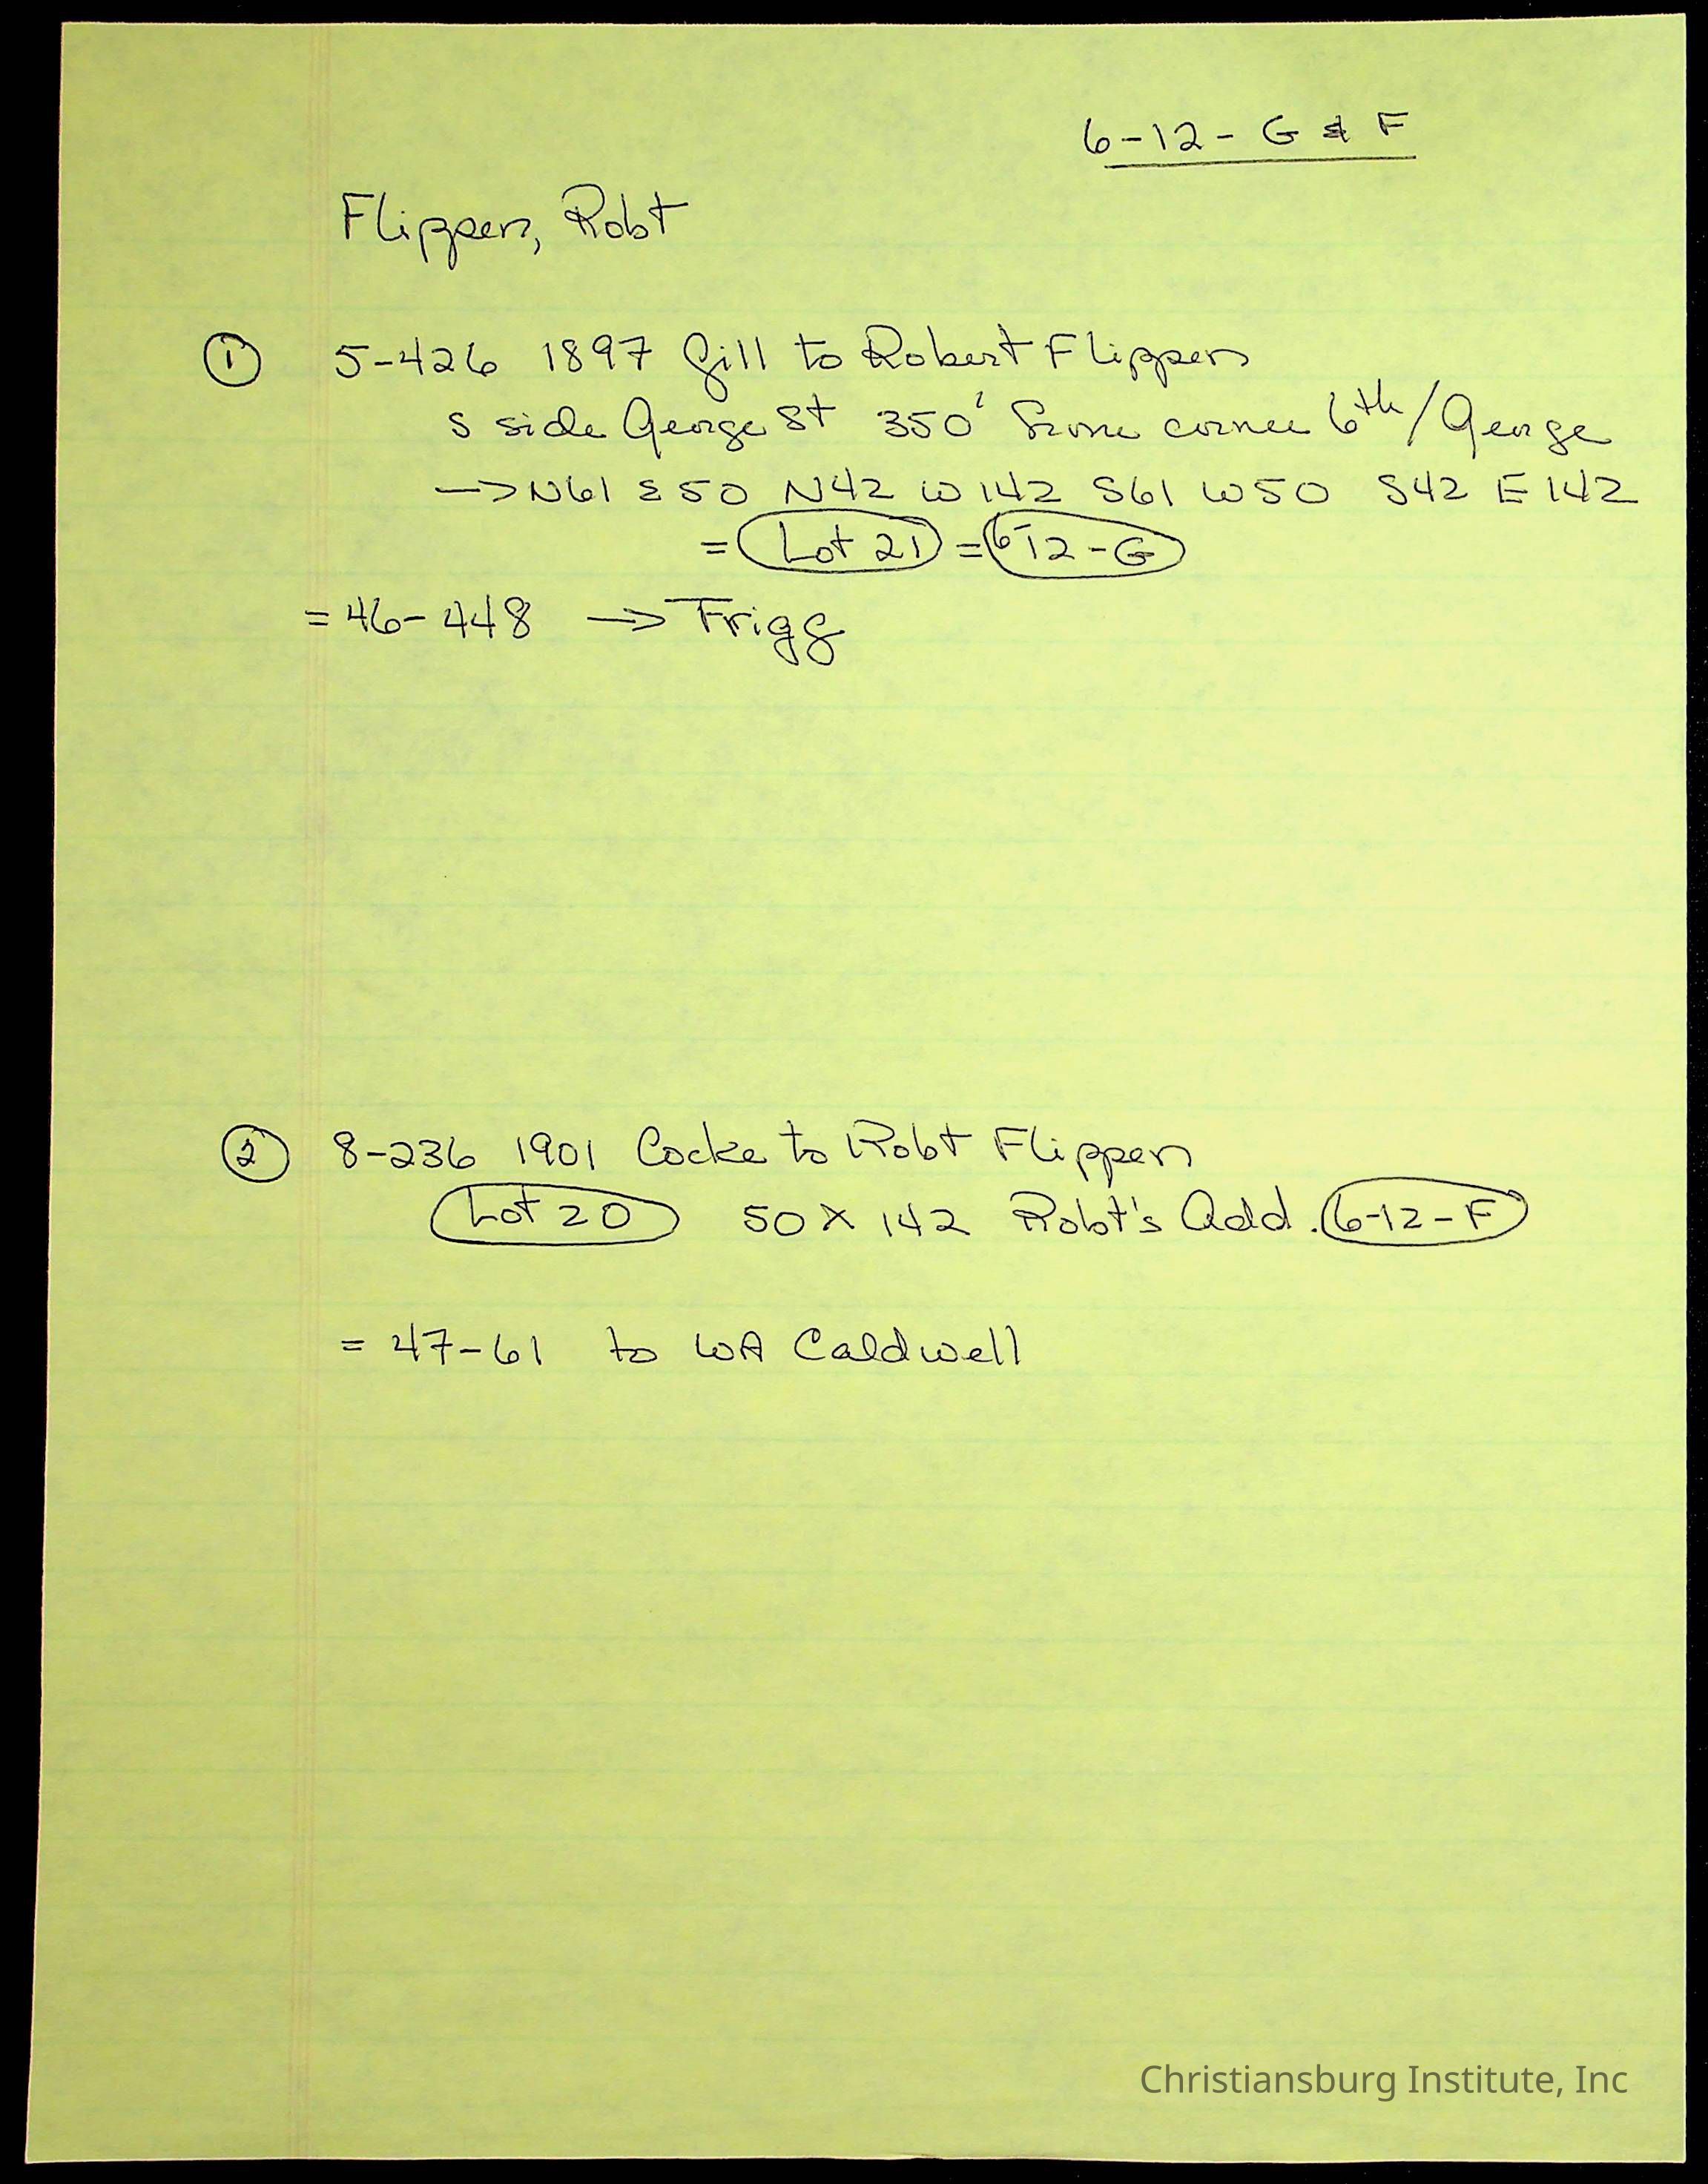 6-12- G & F
Flippen, Robt
① 5-426 1897 Gill to Robert Flippen
S side George St 350' from corner 6th/George
→ N61 E50 N42 W142 S61 W50 S42 E142
= Lot 21 = 6-12-G
= 46-448 → Frigg
② 8-236 1901 Cocke to Robt Flippen
Lot 20 50 X 142 Robt's Add. 6-12-F
= 47-61 to WA Caldwell
Christiansburg Institute, Inc